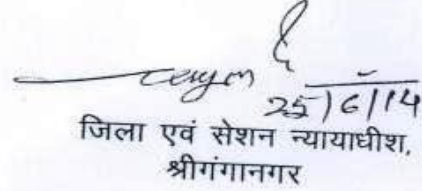 25/6/14
जिला एवं सेशन न्यायाधीश,
श्रीगंगानगर